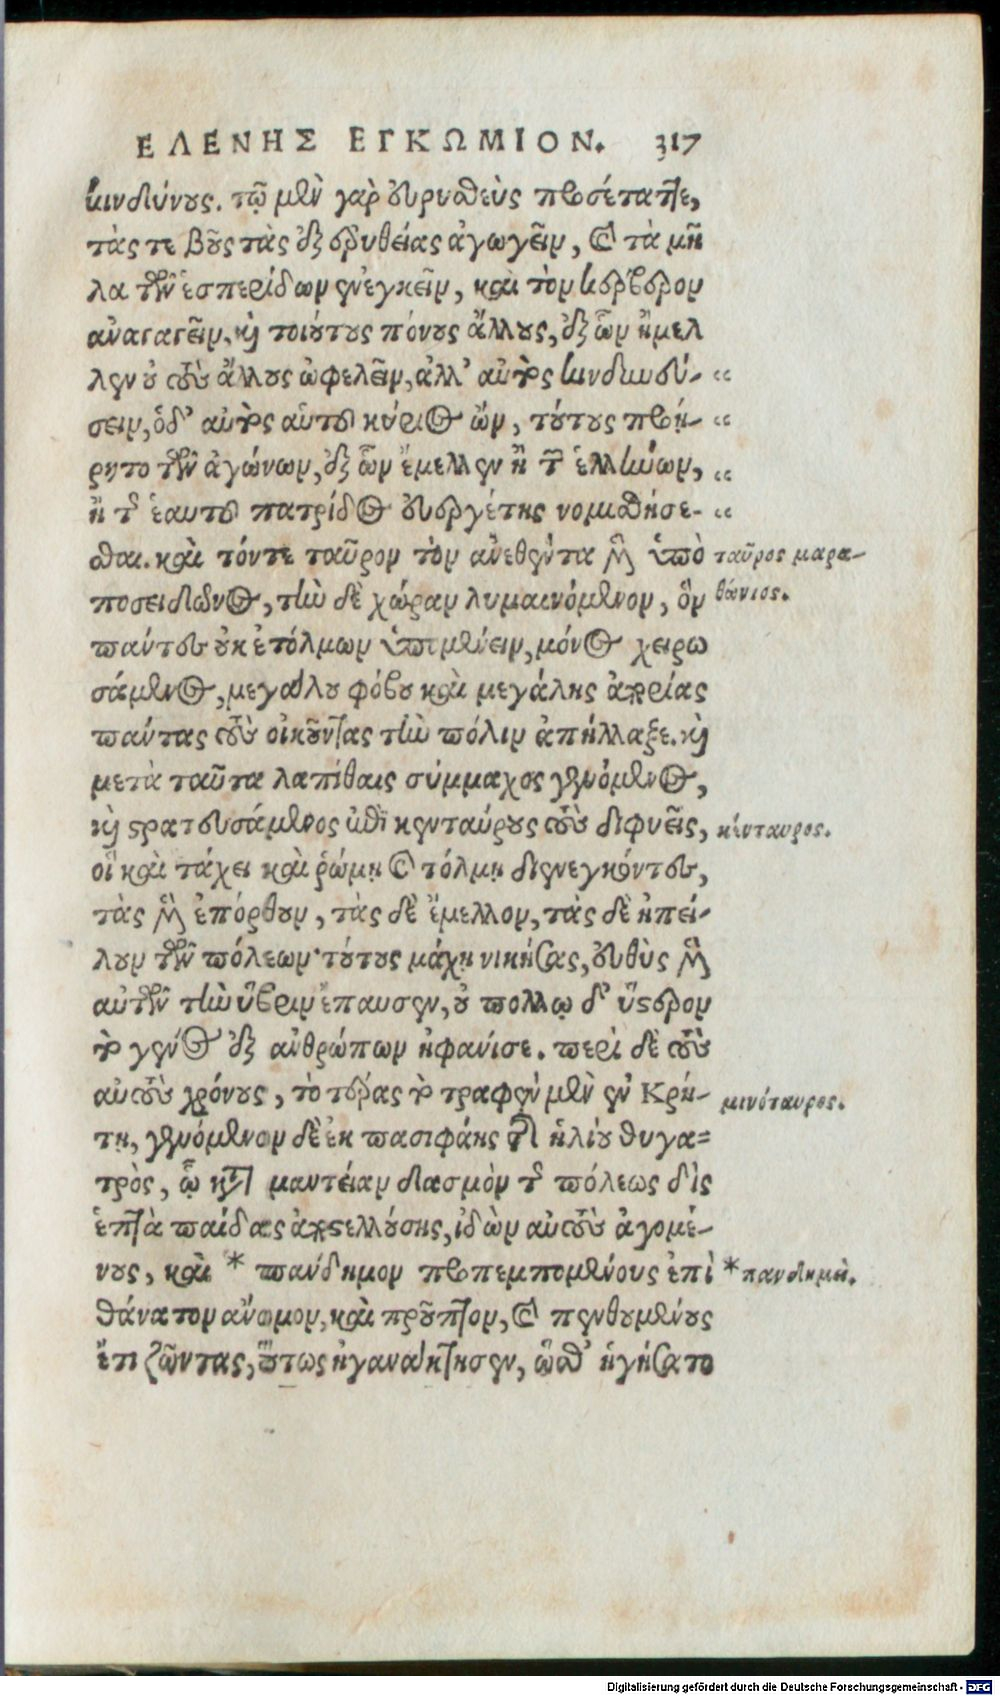 ΕΛΕΝΗΣ ΕΓΚΩΜΙΟΝ. 317
κινδύνους. τῷ μὲν γὰρ εὐρυσθεὺς προσέταττε,
τάς τε βοῦς τὰς ἐξ ἐρυθείας ἀγαγεῖν, καὶ τὰ μῆ
λα τῶν ἑσπερίδων ἐνεγκεῖν, καὶ τὸν κέρβερον
ἀναγαγεῖν, καὶ τοιούτους πόνους ἄλλους, ἐξ ὧν ἤμελ
λεν οὐ τοὺς ἄλλους ὠφελεῖν, ἀλλ' αὐτὸς κινδυνεύ- “
σειν, ὁδ' αὐτὸς αὑτοῦ κύριος ὤν, τούτους προῄ- “
ρητο τῶν ἀγώνων, ἐξ ὧν ἔμελλεν ἢ τῶν ἑλλήνων, “
ἢ τῆς ἑαυτοῦ πατρίδος εὐεργέτης νομισθήσε- “
σθαι. καὶ τόντε ταῦρον τὸν ἀνεθέντα μὲν ὑπὸ
ταῦρος μαρα-
ποσειδῶνος, τὴν δὲ χώραν λυμαινόμενον, ὃν
θώνιος.
πάντες οὐκ ἐτόλμων ὑπομένειν, μόνος χειρω
σάμενος, μεγάλου φόβου καὶ μεγάλης ἀπορίας
πάντας τοὺς οἰκοῦντας τὴν πόλιν ἀπήλλαξε. καὶ
μετὰ ταῦτα λαπίθαις σύμμαχος γενόμενος,
καὶ στρατευσάμενος ἐπὶ κενταύρους τοὺς διφυεῖς,
κένταυρος.
οἳ καὶ τάχει καὶ ῥώμῃ καὶ τόλμῃ διενεγκόντες,
τὰς μὲν ἐπόρθουν, τὰς δὲ ἔμελλον, τὰς δὲ ἠπεί-
λουν τῶν πόλεων· τούτους μάχῃ νικήσας, εὐθὺς μὲν
αὐτῶν τὴν ὕβριν ἔπαυσεν, οὐ πολλῷ δ' ὕστερον
τὸ γένος ἐξ ἀνθρώπων ἠφάνισε. περὶ δὲ τοὺς
αὐτοὺς χρόνους, τὸ τέρας τὸ τραφὲν μὲν ἐν Κρή-
μινόταυρος.
τῃ, γενόμενον δὲ ἐκ πασιφάης τῆς ἡλίου θυγα=
τρὸς, ᾧ κατὰ μαντείαν δασμὸν τῆς πόλεως δὶς
ἑπτὰ παῖδας ἀποστελλούσης, ἰδὼν αὐτοὺς ἀγομέ-
νους, καὶ * πάνδημον προπεμπομένους ἐπὶ
* πανδημεὶ.
θάνατον ἄνομον, καὶ προῦπτον, καὶ πενθουμένους
ἔτι ζῶντας, οὕτως ἠγανάκτησεν, ὥσθ' ἡγήσατο
Digitalisierung gefördert durch die Deutsche Forschungsgemeinschaft - DFG